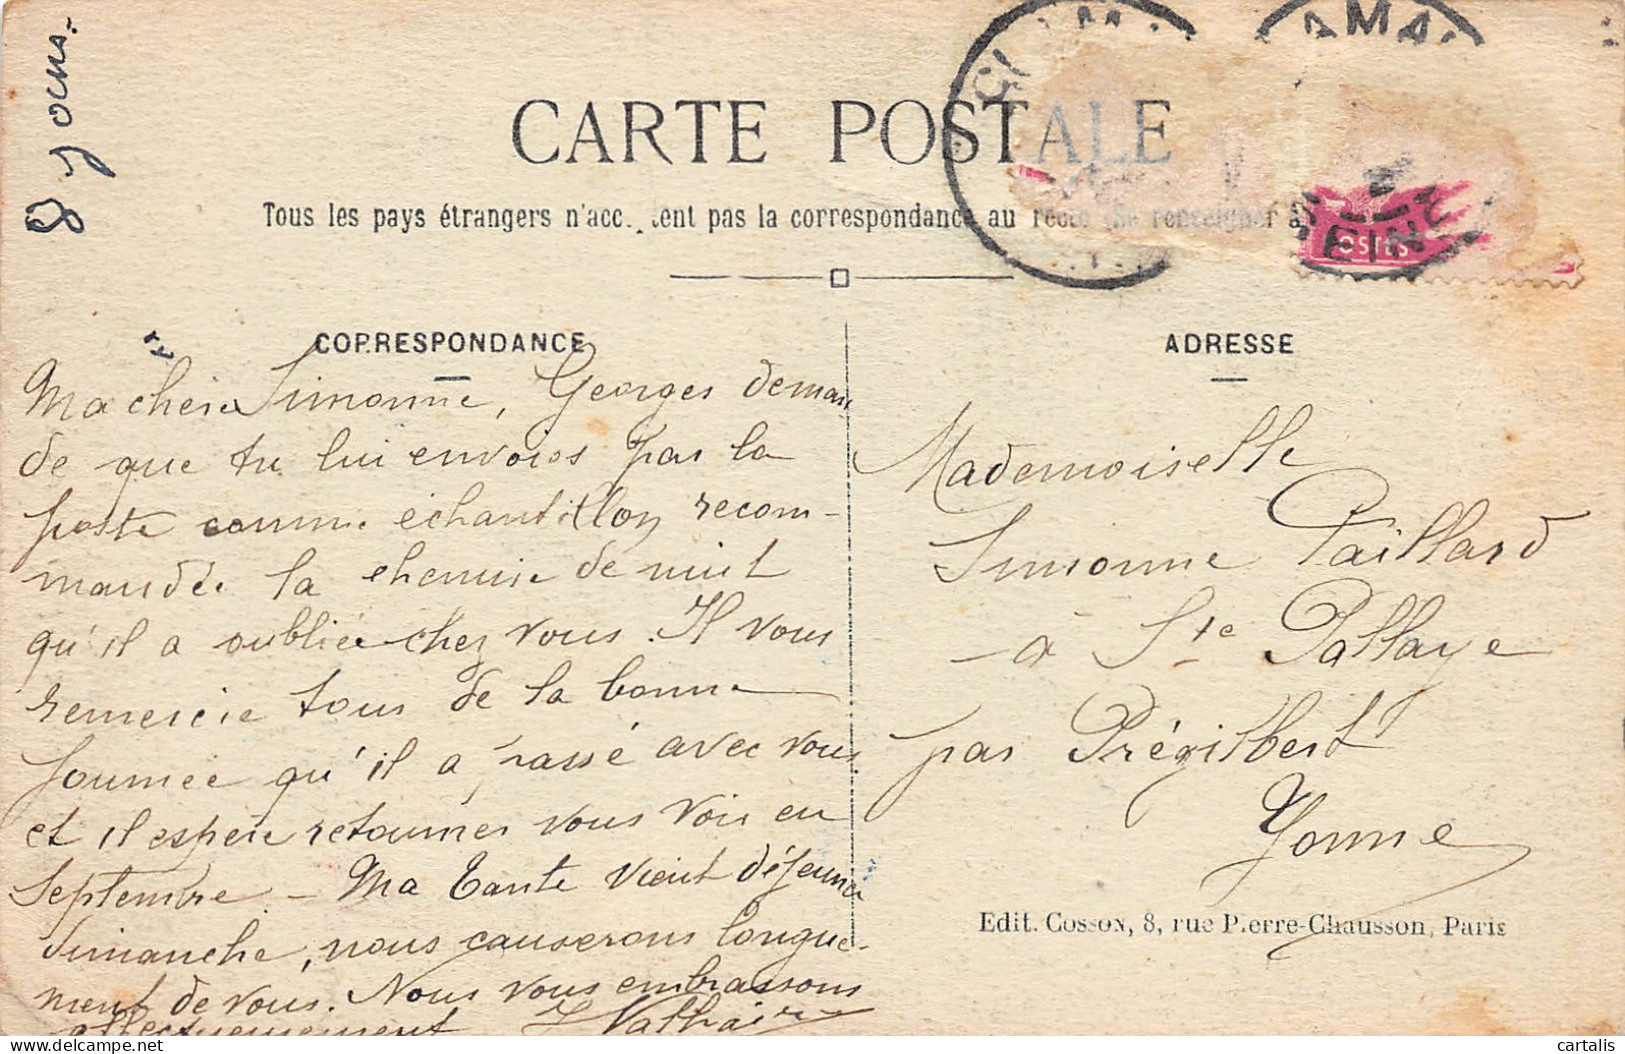 8 jours.-
CARTE POSTALE
Tous les pays étrangers n'acc. tent pas la correspondance au recto (Se renseigner à
OSTES
CORRESPONDANCE
Ma chère Simonne, Georges deman
de que tu lui envoies par la
poste comme échantillon recom-
mandée la chemise de nuit
qu'il a oubliée chez vous. Il vous
remercie tous de la bonne
journée qu'il a passé avec vous
et il espère retourner vous voir en
Septembre. - Ma Tante vient déjeuner
dimanche, nous causerons longue-
ment de vous. Nous vous embrassons
affectueusement
ADRESSE
Mademoiselle
Simonne Paillard
à Ste Pallaye
par Prégilbert
Yonne
Edit. Cosson, 8, rue Pierre-Chausson, Paris
delcampe.net
cartalis